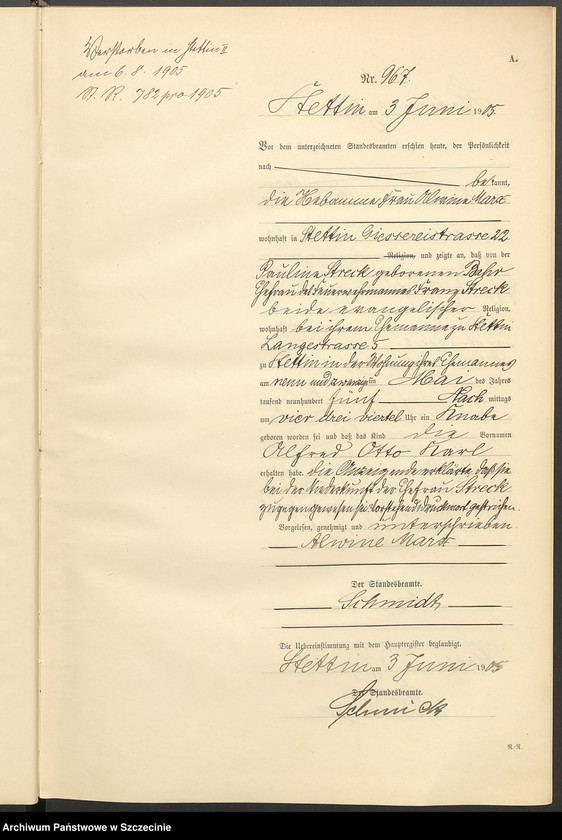 Verstorben in Stettin II
am 6. 8. 1905
St. R. 782 pro 1905
A.
Nr. 967.
Stettin am 3 Juni 1905.
Vor dem unterzeichneten Standesbeamten erschien heute, der Persönlichkeit
nach
bekannt,
die Hebamme Frau Alwine Marx
wohnhaft in Stettin Giessereistrasse 22
Religion, und zeigte an, daß von der
Pauline Streck geborenen Behr
Ehefrau des Feuerwehrmannes Franz Streck
beide evangelischer Religion,
wohnhaft bei ihrem Ehemanne zu Stettin
Langestrasse 5
zu Stettin in der Wohnung ihres Ehemannes
am neun und zwanzigsten Mai des Jahres
tausend neunhundert fünf Nach mittags
um vier drei viertel Uhr ein Knabe
geboren worden sei und daß das Kind die Vornamen
Alfred Otto Karl
erhalten habe. die Anzeigende erklärte, daß sie
bei der Niederkunft der Ehefrau Streck
zugegen gewesen sei. Vorstehend 1 Druckwort gestrichen.
Vorgelesen, genehmigt und unterschrieben
Alwine Marx
Der Standesbeamte.
Schmidt
Die Uebereinstimmung mit dem Hauptregister beglaubigt.
Stettin am 3 Juni 1905
Der Standesbeamte.
R.-R.
Archiwum Państwowe w Szczecinie